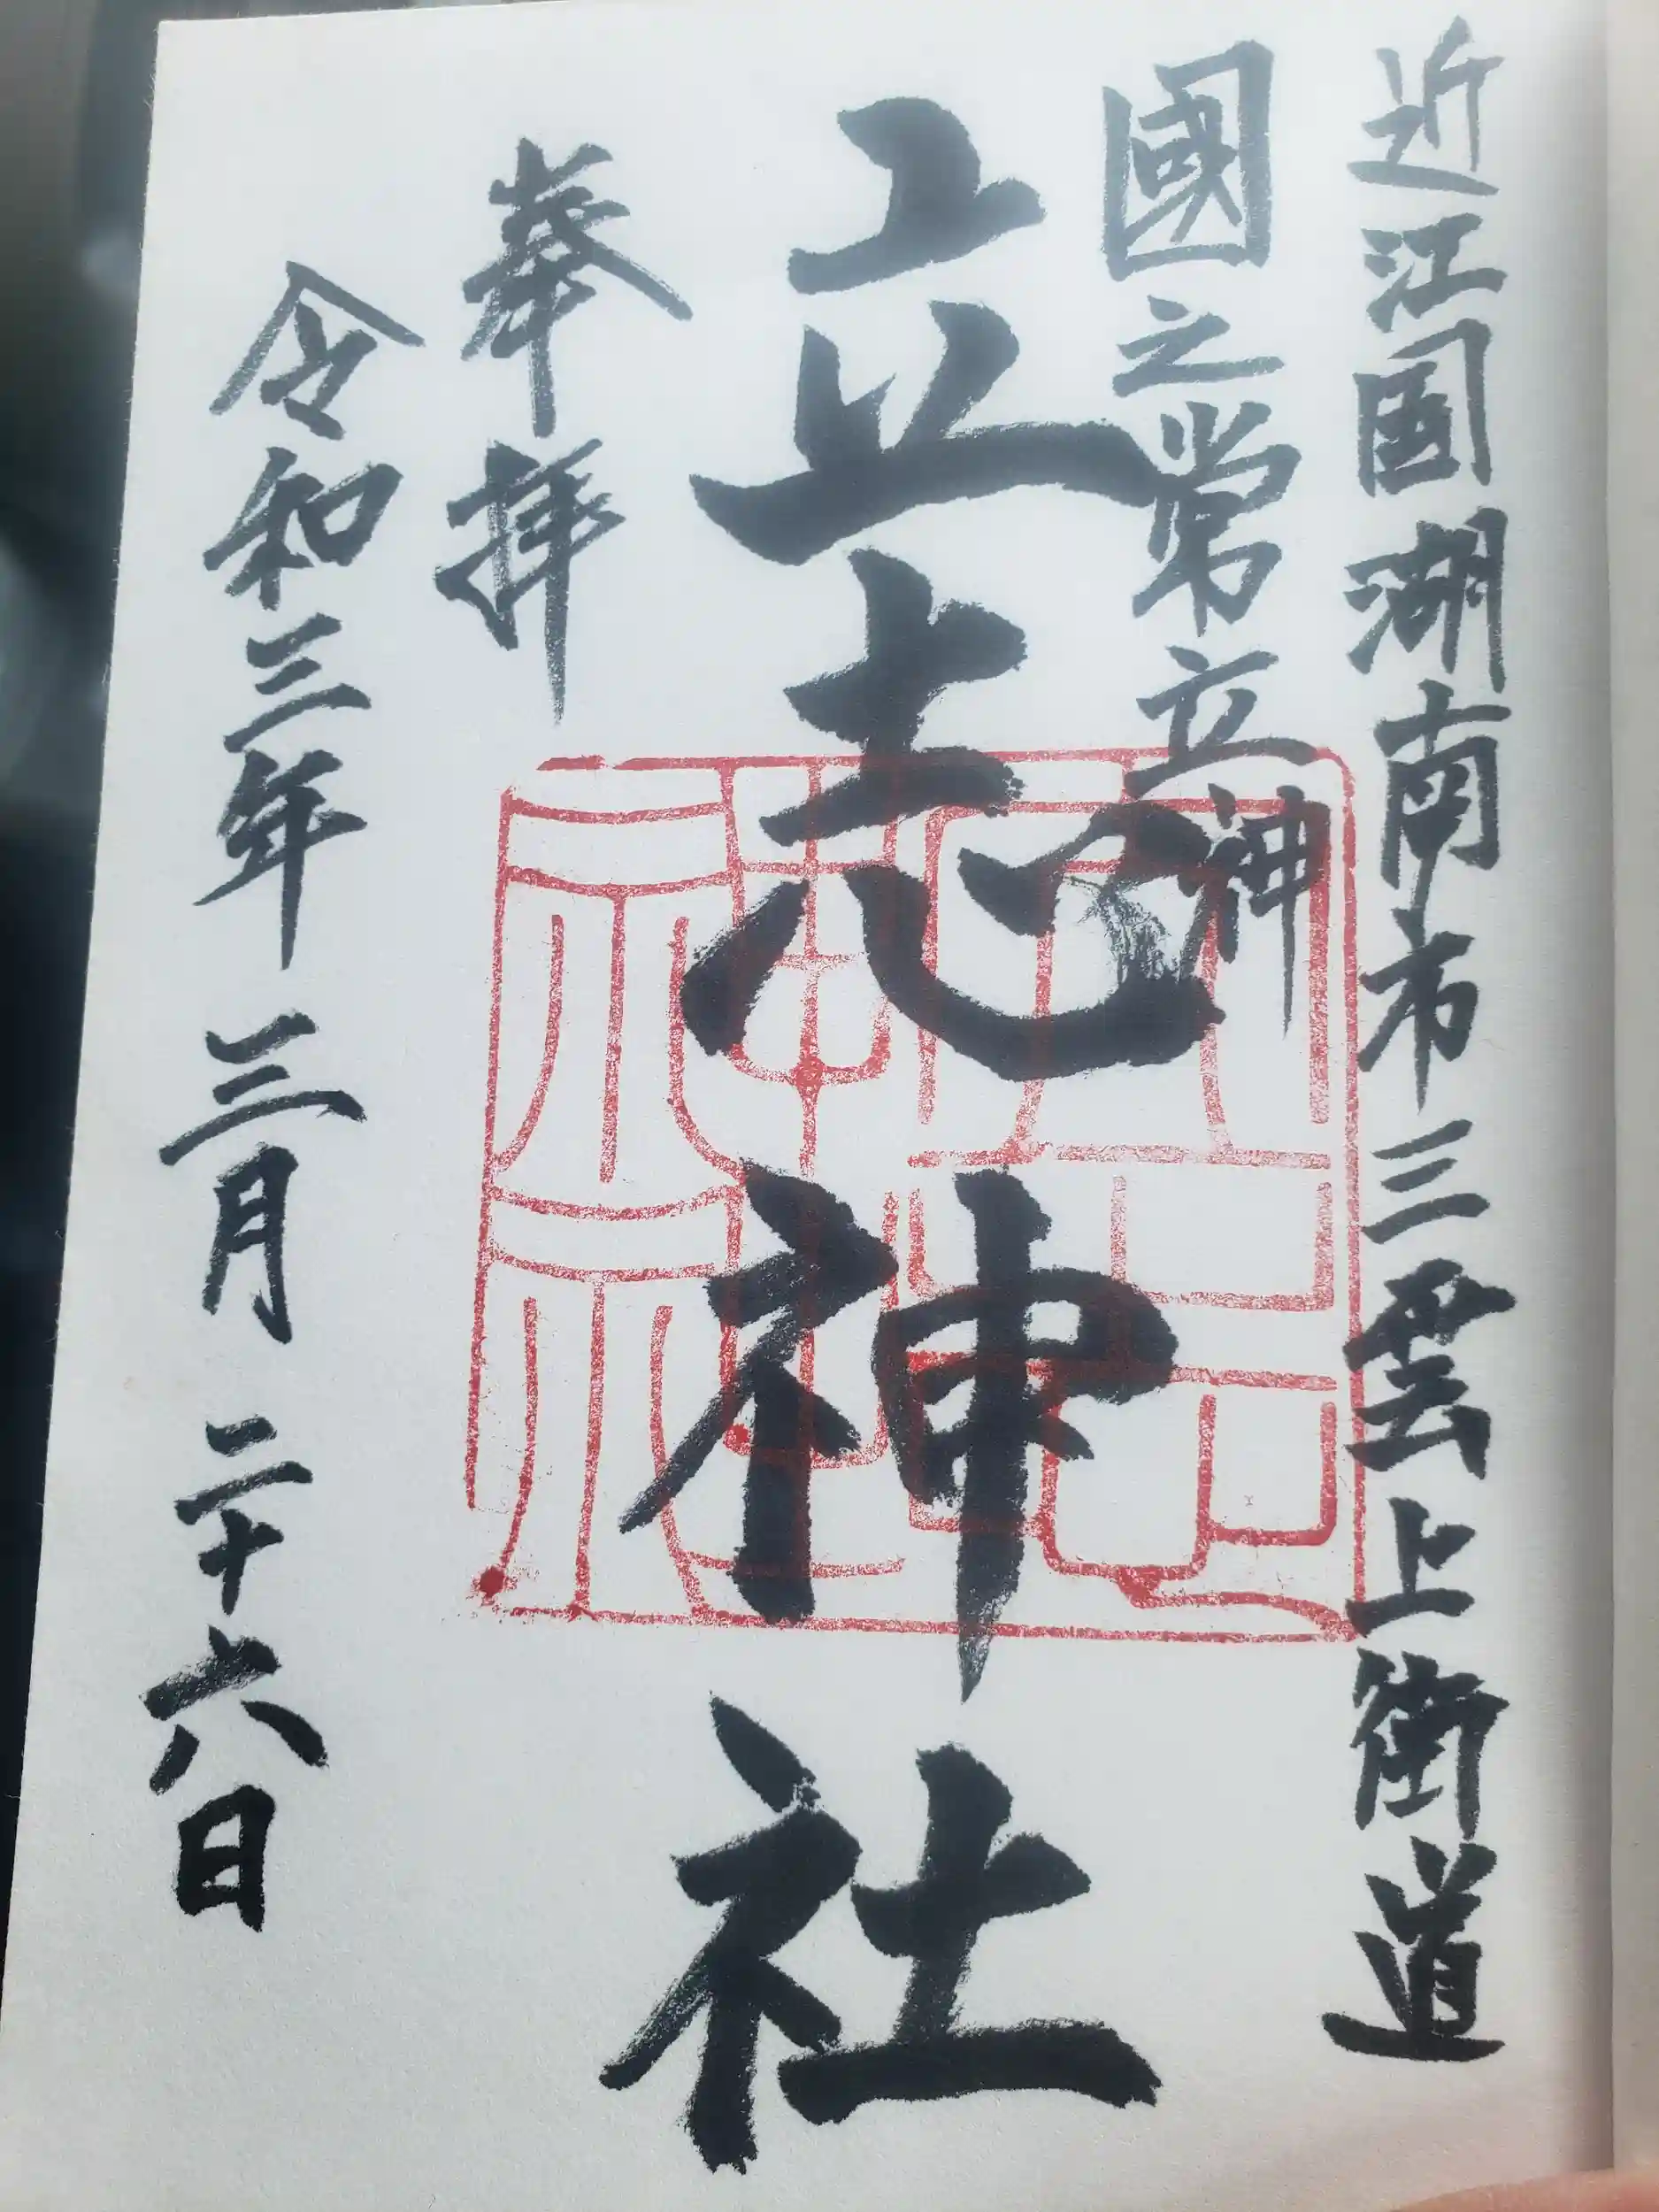 近江国湖南市三雲上街道
國之常立神
立志神社
奉拝
令和三年三月二十六日